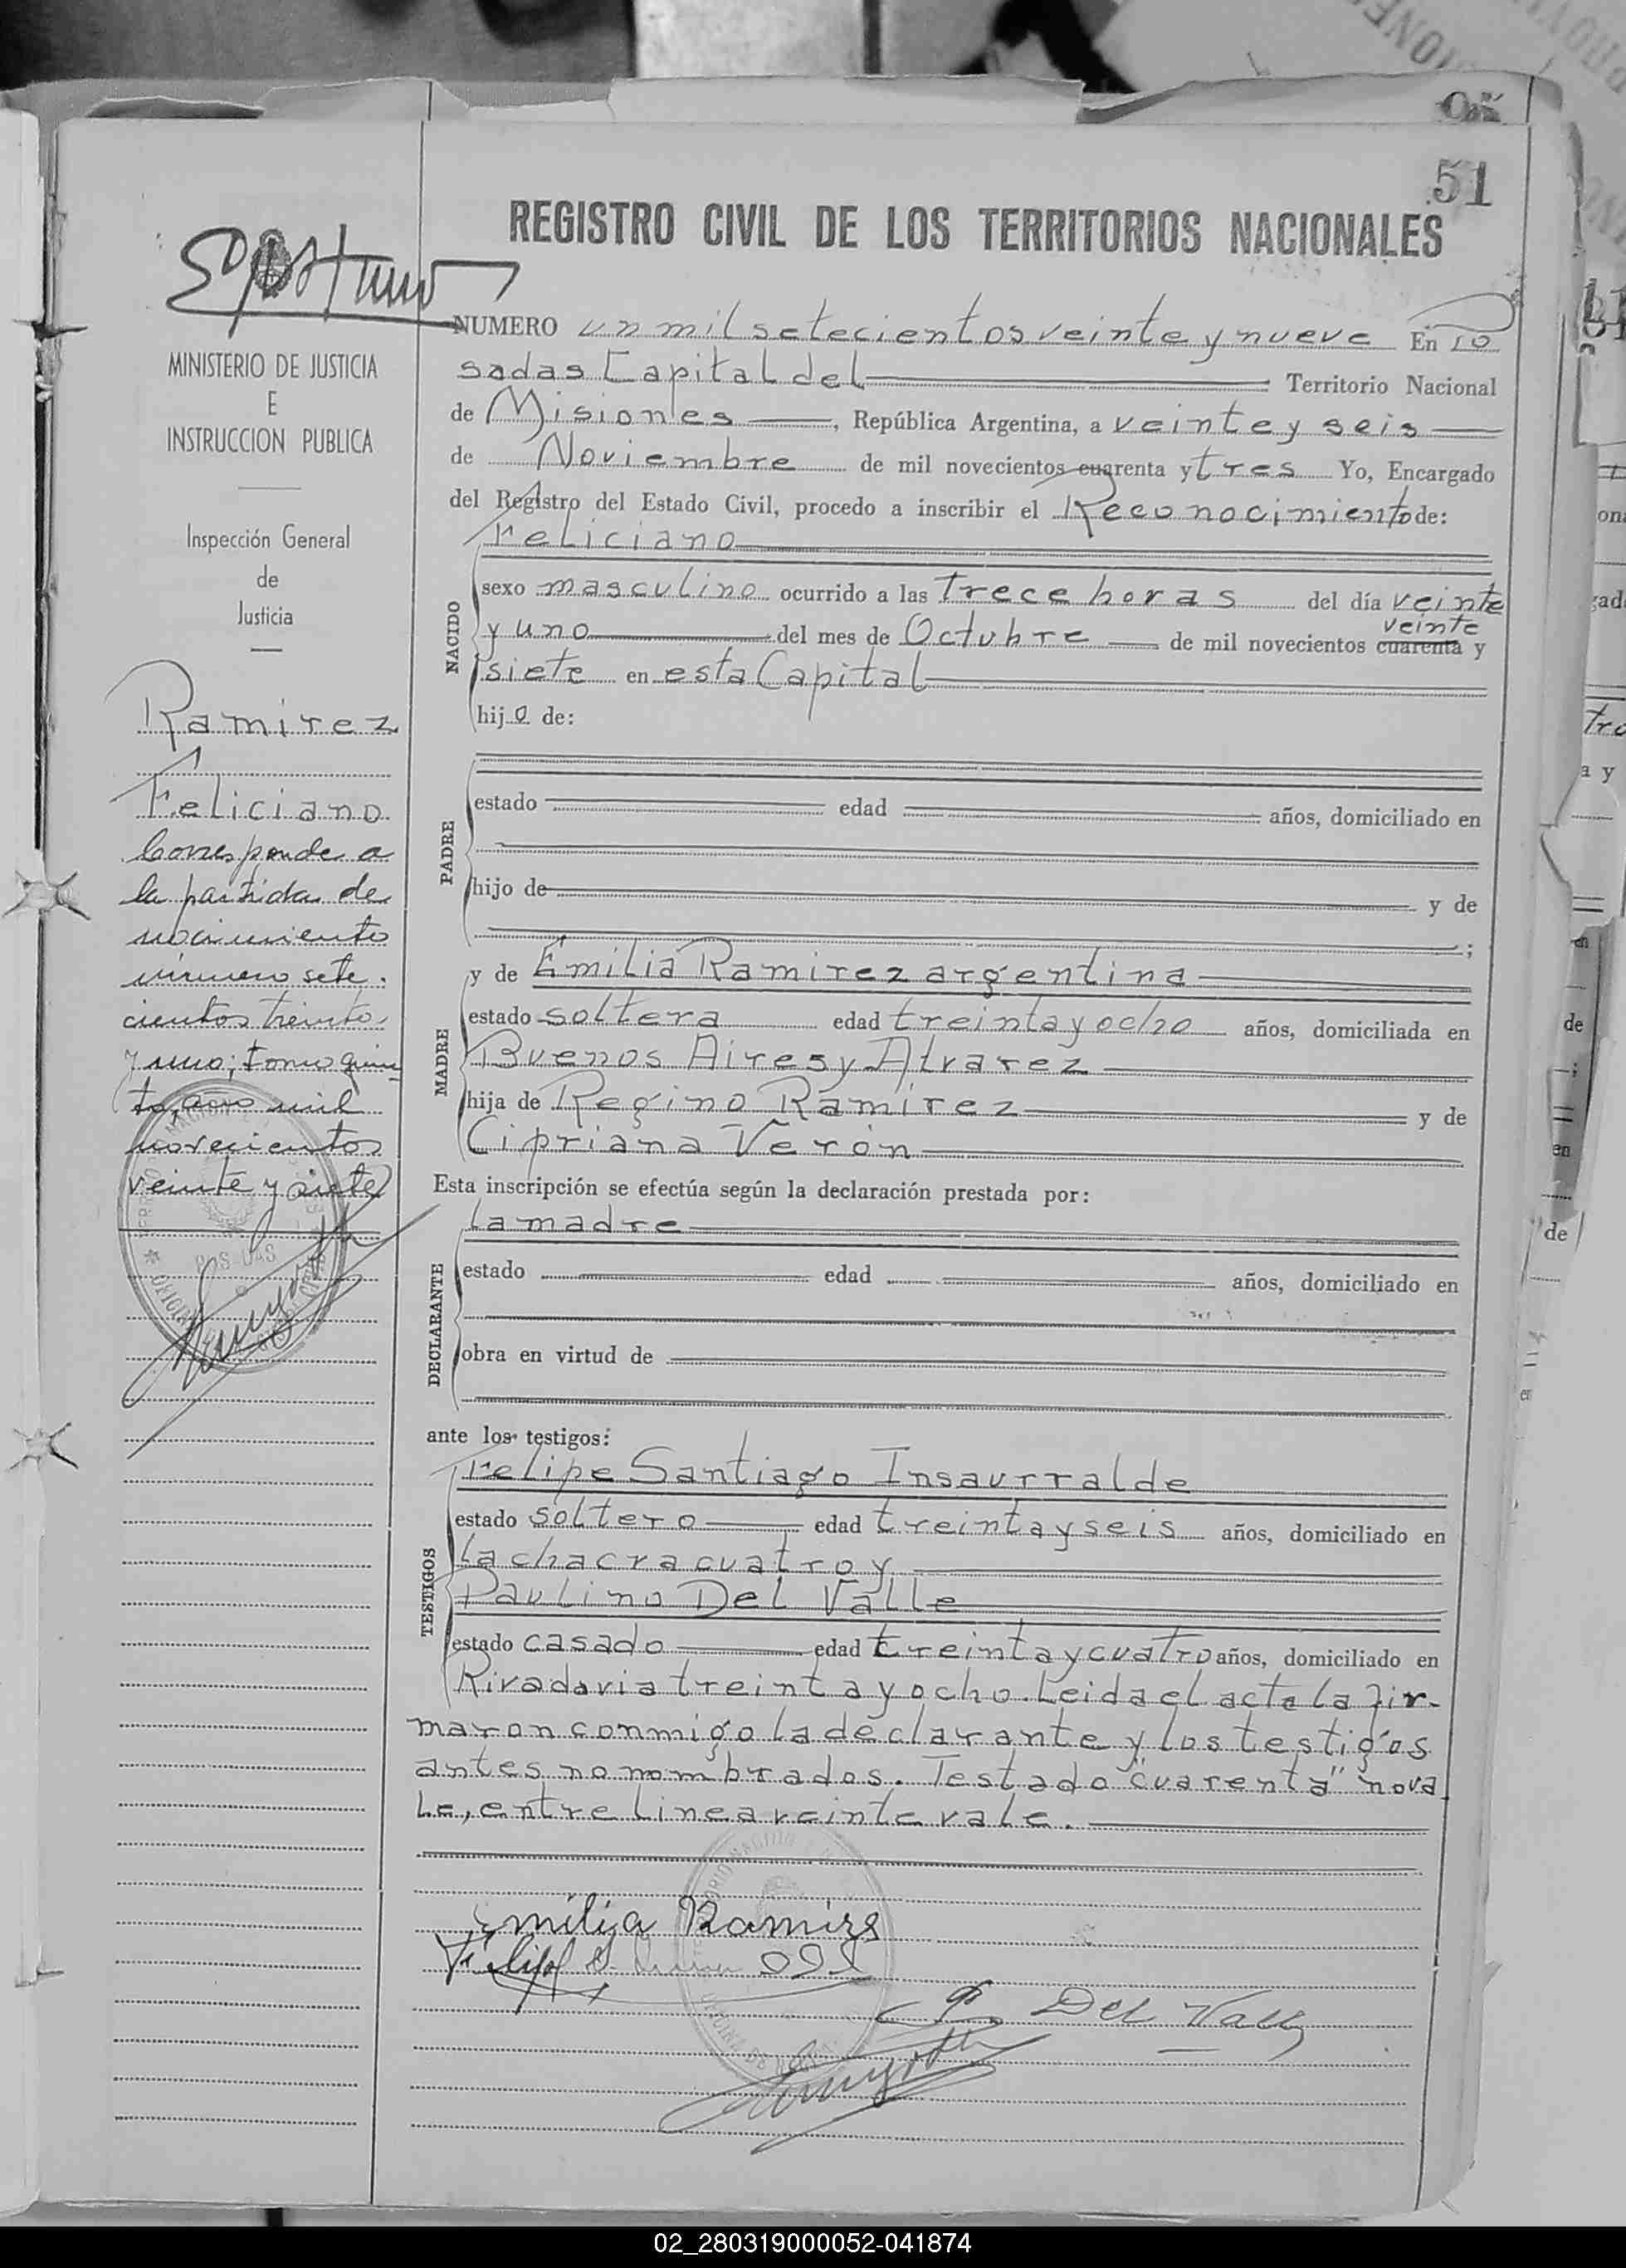 51
REGISTRO CIVIL DE LOS TERRITORIOS NACIONALES
MINISTERIO DE JUSTICIA
E
INSTRUCCION PUBLICA
Inspección General
de
Justicia
Ramirez
Feliciano
Corresponde a
la partida de
nacimiento
número sete.
cientos treinta
y uno; tomo quin
to, año mil
novecientos
veinte y siete
NUMERO un mil setecientos veinte y nueve En Po
sadas Capital del Territorio Nacional
de Misiones, República Argentina, a veinte y seis
de Noviembre de mil novecientos cuarenta y tres Yo, Encargado
del Registro del Estado Civil, procedo a inscribir el Reconocimiento de:
Feliciano
NACIDO
sexo masculino ocurrido a las trece horas del día veinte
veinte
y uno del mes de Octubre de mil novecientos cuarenta y
siete en esta Capital
hijo de:
PADRE
estado edad años, domiciliado en
hijo de y de
;
MADRE
y de Emilia Ramirez argentina
estado soltera edad treinta y ocho años, domiciliada en
Buenos Aires y Alvarez
hija de Regino Ramirez y de
Cipriana Verón
Esta inscripción se efectúa según la declaración prestada por:
DECLARANTE
la madre
estado edad años, domiciliado en
obra en virtud de
ante los testigos:
TESTIGOS
Felipe Santiago Insaurralde
estado soltero edad treinta y seis años, domiciliado en
la chacra cuatro y
Paulino Del Valle
estado casado edad treinta y cuatro años, domiciliado en
Rivadavia treinta y ocho. Leida el acta la fir-
maron conmigo la declarante y los testigos
antes nomombrados. Testado "cuarenta" no va
le, entre linea veinte vale.
Emilia Ramires
P. Del Valle
02_280319000052-041874